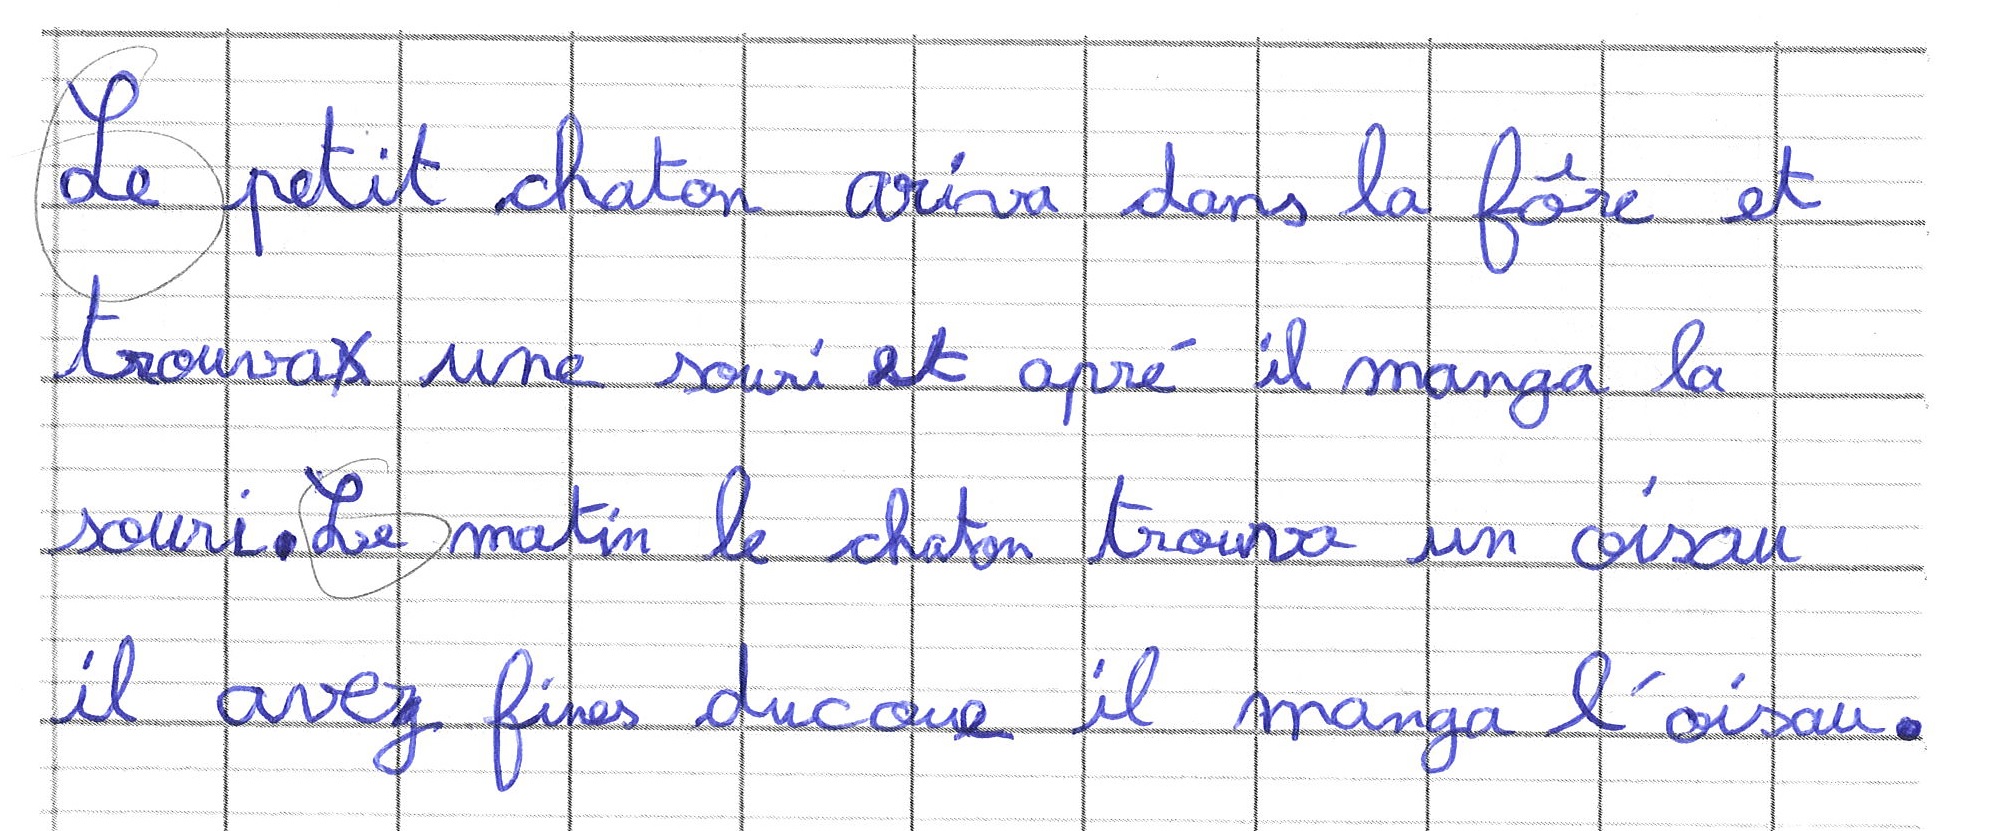 Le petit chaton ariva dans la fôre et
trouvax une souri et apré il manga la
souri. Le matin le chaton trouva un oisau
il avez fines ducoue il manga l'oisau.